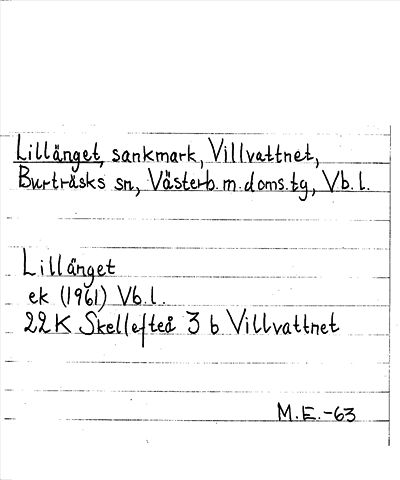 Lillänget, sankmark, Villvattnet,
Burträsks sn, Västerb. m. doms. tg, Vb. l.
Lillänget
ek (1961) Vb. l.
22 K Skellefteå 3 b Villvattnet
M.E.-63